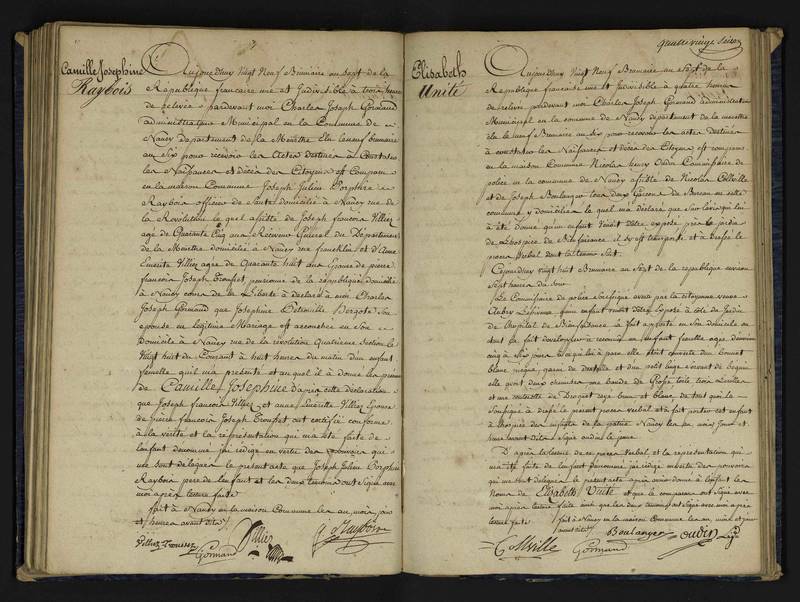 Camille Josephine
Raybois
Aujourd'huy Vingt Neuf Brumaire an Sept de la
Republique francaise une et Indivisible à trois heures
de relevée, pardevant moi Charles Joseph Gormand
administrateur Municipal en la Commune de
Nancy departement de la Meurthe Elu le neuf brumaire
an Six pour recevoir les Actes Destinés à Constater
les Naissances et décès des Citoyens est Comparu
en la maison Commune Joseph Julien Porphire
Raybois officier de Santé domicilié à Nancy rue de
la Revolution le quel assisté de Joseph francois Villiez
agé de Quarante Cinq ans Receveur General du Departement
de la Meurthe domicilié à Nancy rue francklin et d'Anne
Villiez agée de Quarante huit ans Epouse de pierre
francois Joseph Trouset pensionné de la republique domicilié
à Nancy cours de la Liberté à déclaré à moi Charles
Joseph Gormand que Josephine Bergote son
epouse en legitime Mariage est accouchée en Son
Domicile à Nancy rue de la revolution quatrieme Section le
Vingt huit du Courant à huit heures du matin d'un enfant
femelle qu'il m'a presenté et au quel il à donné les prenoms
de Camille Josephine d'après cette déclaration
que Joseph francois Villiez et anne Villiez Epouse
de pierre francois Joseph Trouset ont certifiée conforme
à la vérité et la représentation qui m'a été faite de
l'enfant denommé j'ai redigé en vertu des pouvoirs qui
me sont délégués le present acte que Joseph Julien Porphire
Raybois pere de l'enfant et les deux temoins ont Signé avec
moi apres lecture faite
fait à Nancy en la maison Commune les an, mois, jour
et heures avant dits
Villiez Trouset Gormand Villiez Raybois
quatre vingt Seize
Elisabeth
Unité
Aujourd'huy Vingt Neuf Brumaire an Sept de la
Republique francaise une et Indivisible à quatre heures
de relevée pardevant moi Charles Joseph Gormand administrateur
Municipal en la commune de Nancy departement de la meurthe
élu le neuf Brumaire an Six pour recevoir les actes Destinés
à constater les Naissances et décès des Citoyens est comparu
en la maison Commune Nicolas henry Oudin Commissaire de
police en la commune de Nancy assisté de Nicolas
et de Joseph Boulanger tous deux Garcons de Bureau en cette
commune y domiciliés le quel m'a déclaré que Sur l'avis qui lui
à été donné qu'un enfant Venoit d'être exposé près le jardin
de l'hospice de Bienfaisance il s'y est transporté et à dressé le
procès verbal dont la teneur Suit
Cejourd'huy vingt huit Brumaire an Sept de la republique environ
Sept heures du soir
Le Commissaire de police Soussigné averti par la citoyenne veuve
Aubry qu'un enfant venoit d'être Exposé à côté du Jardin
de l'hopital de Bienfaisance à fait apporté en Son domicile
le fait développer a reconnu un enfant femelle agée d'environ
cinq à six jours elle étoit couverte d'un bonnet
blanc piqué, garni de dentelle et d'un petit linge
elle avoit deux chemises une bande de Grosse toile trois
et une couverte de Droguet rayé brun et blanc de tout quoi le
Soussigné à dressé le present procès verbal et à fait porter cet enfant
à l'hospice des enfants de la patrie Nancy les an mois jour et
heures avant dits Signé oudin
D'après la lecture de ce procès verbal et la représentation qui
m'a été faite de l'enfant denommé j'ai redigé en vertu des pouvoirs
qui me sont délégués le present acte après avoir donné à l'enfant les
Noms de Elisabeth Unité et que le comparant ont Signé avec
moi après lecture faite ainsi que les deux temoins ont Signé avec moi après
lecture faite
fait à Nancy en la maison Commune les an, mois et jour
avant dits
Boulanger oudin
Gormand